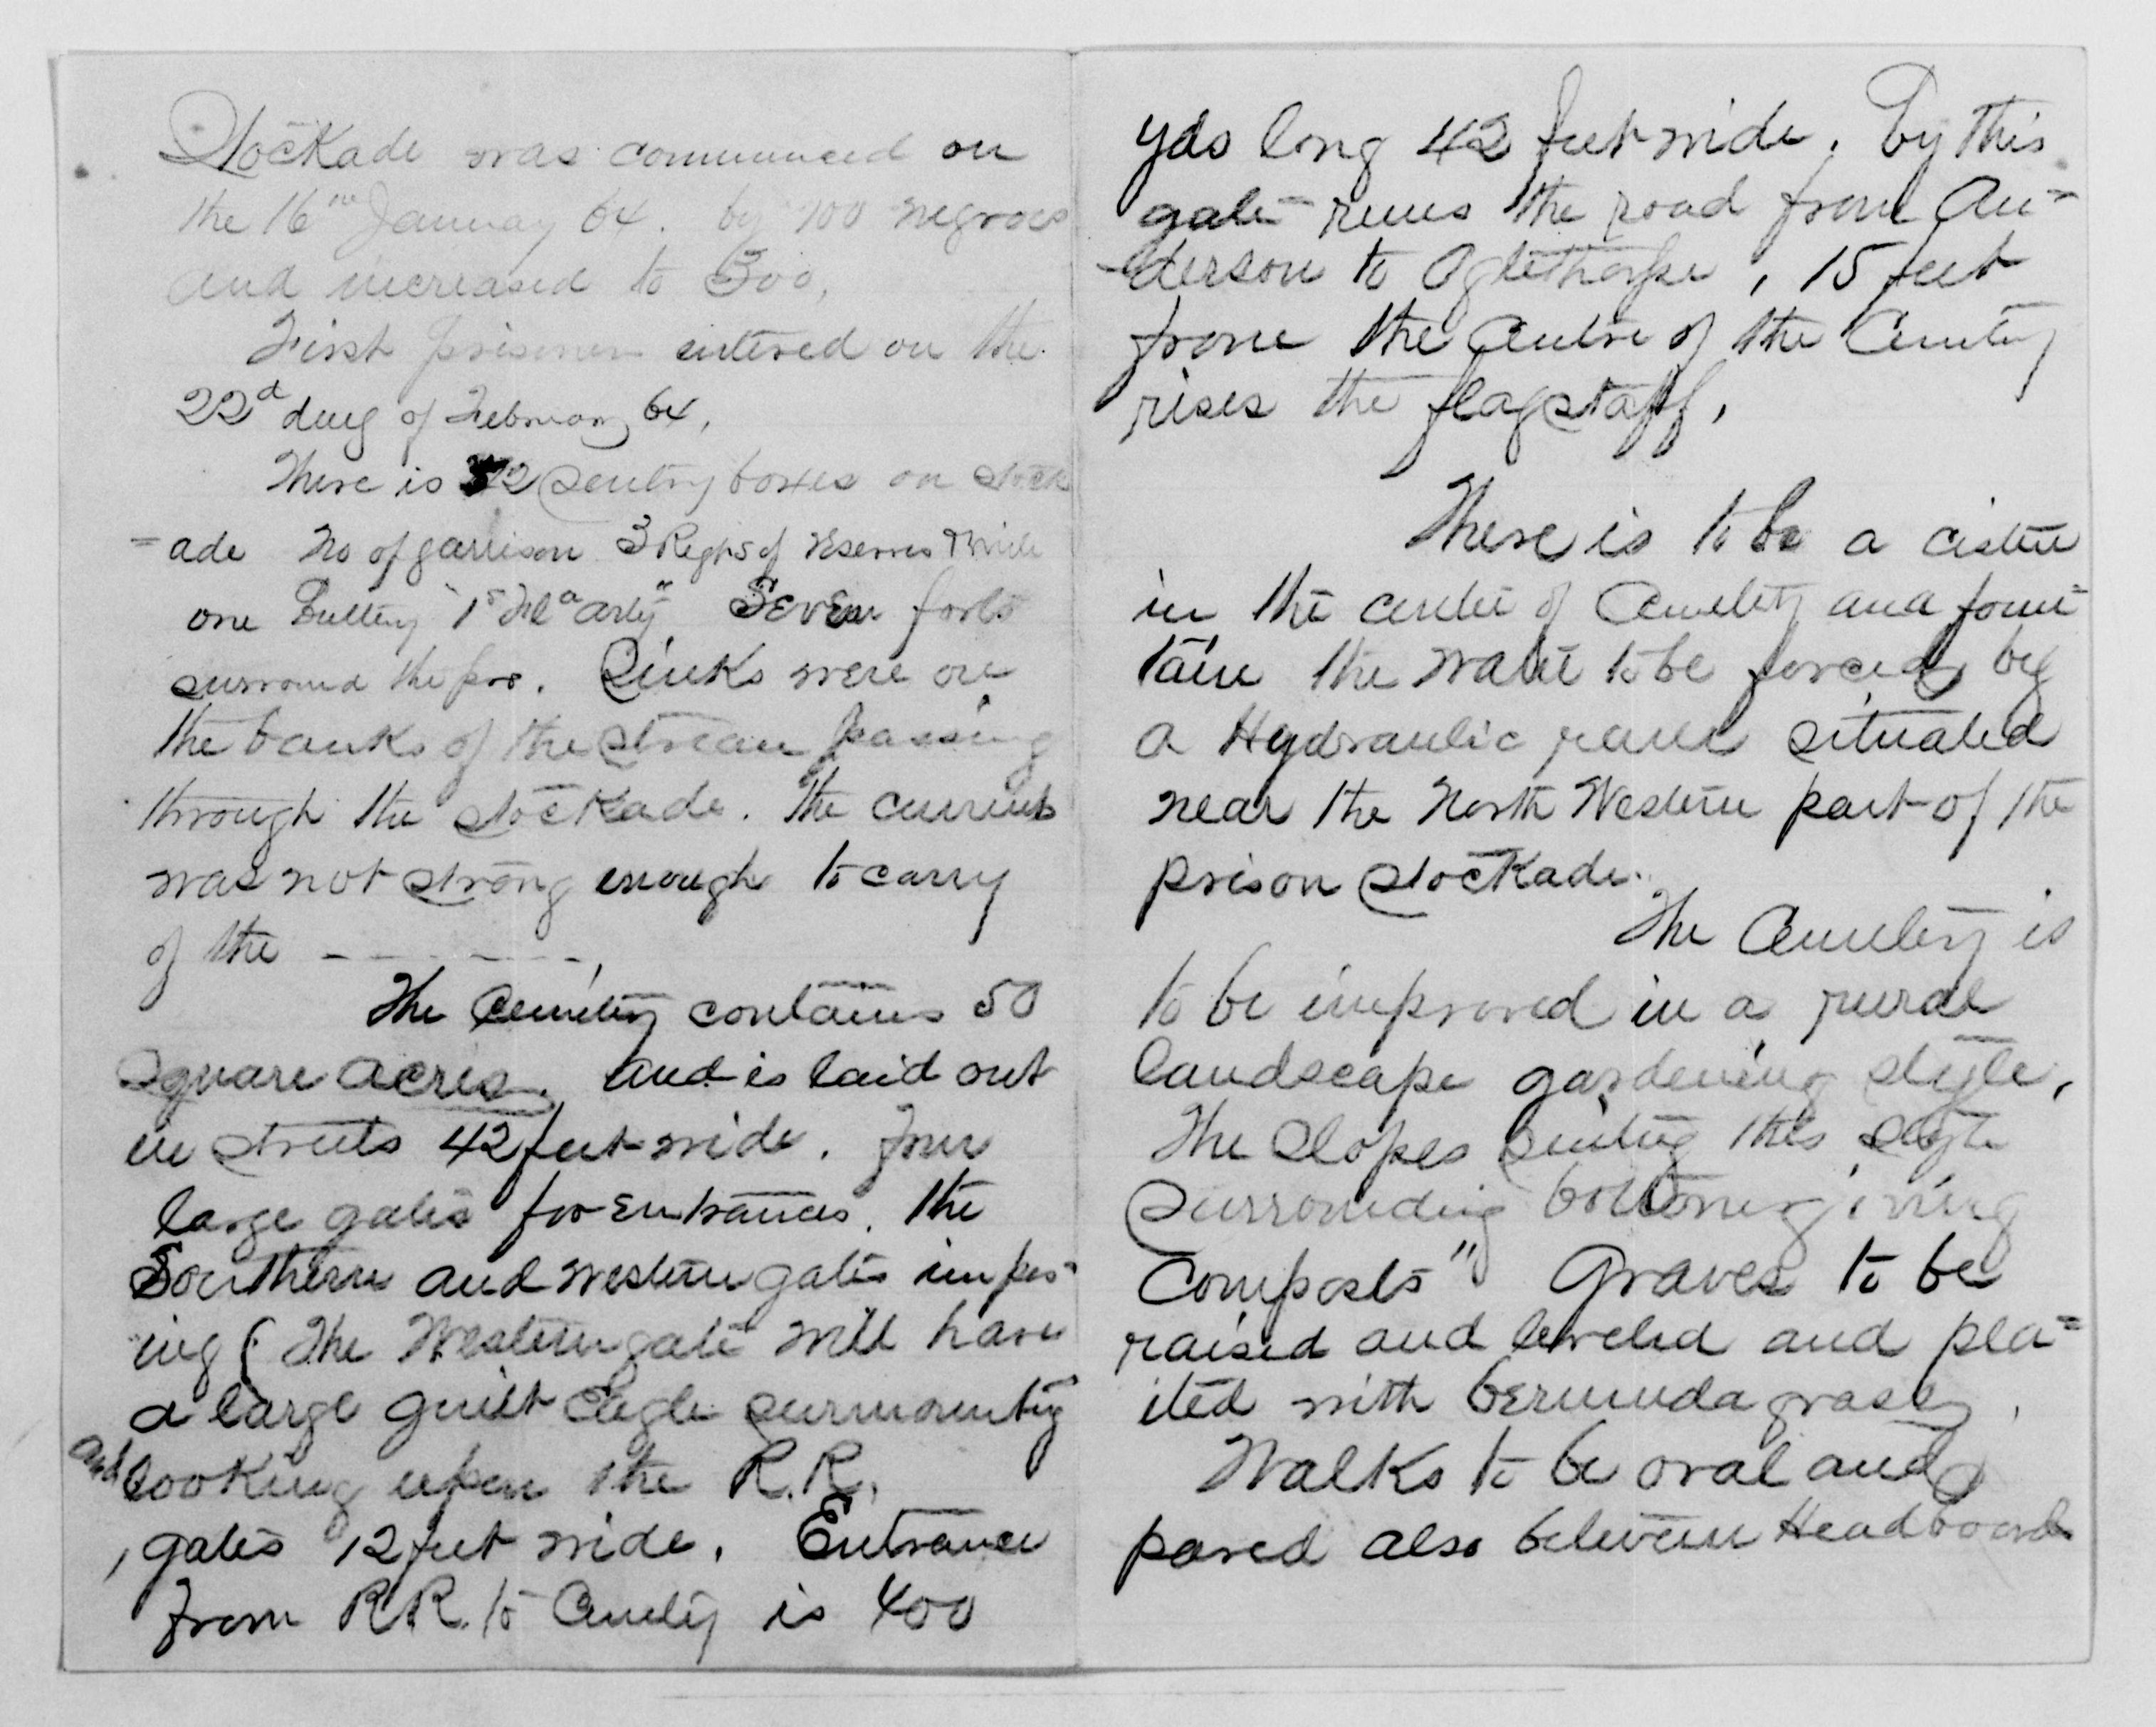 Stockade was commenced on
the 16th January 64. by 100 negroes
and increased to 500,
First prisoner entered on the
22d day of February 64,
There is 52 Sentry boxes on stock
=ade No of garrison 3 Regts of reserves &
one Battery "1st Fla Arty" Seven forts
surround the pro. Sinks were on
the banks of the Stream passing
through the stockade. The current
was not strong enough to carry
of the - - - - - -,
The Cemetery contains 50
Square acres, and is laid out
in streets 42 feet wide. four
large gates for Entrances. The
Southern and Western gates impos=
ing ( The Western gate will have
a large guilt Eagle surmounting
and looking upon the R.R,
, gates 12 feet wide. Entrance
from R.R. to Cemetery is 400
yds long 42 feet wide. By this
gate runs the road from An=
=derson to Oglethorpe, 15 feet
from the Centre of the Cemetery
rises the flagstaff,
There is to be a cistern
in the center of Cemetery and foun=
tain the water to be forced by
a Hydraulic ram situated
near the North Western part of the
prison stockade.
The Cemetery is
to be improved in a rural
landscape gardening style,
The Slopes suiting this style
Surrounding bottoms giving
Composts" Graves to be
raised and leveled and pla=
ited with bermuda grass,
Walks to be oval and
paved also between Headboards